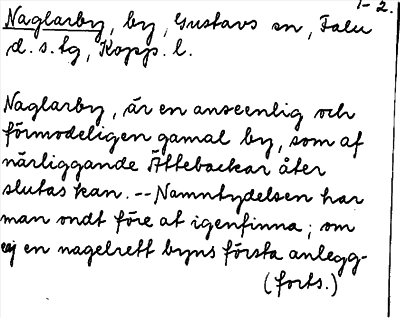 1-2.
Naglarby, by, Gustavs sn, Falu
d. s. lg, Kopp. l.
Naglarby, är en anseenlig och
förmodeligen gamal by, som af
närliggande Ättebackar åter
slutas kan. -- Namntydelsen har
man ondt före at igenfinna; om
ej en nagelrett byns första anlegg-
(forts.)